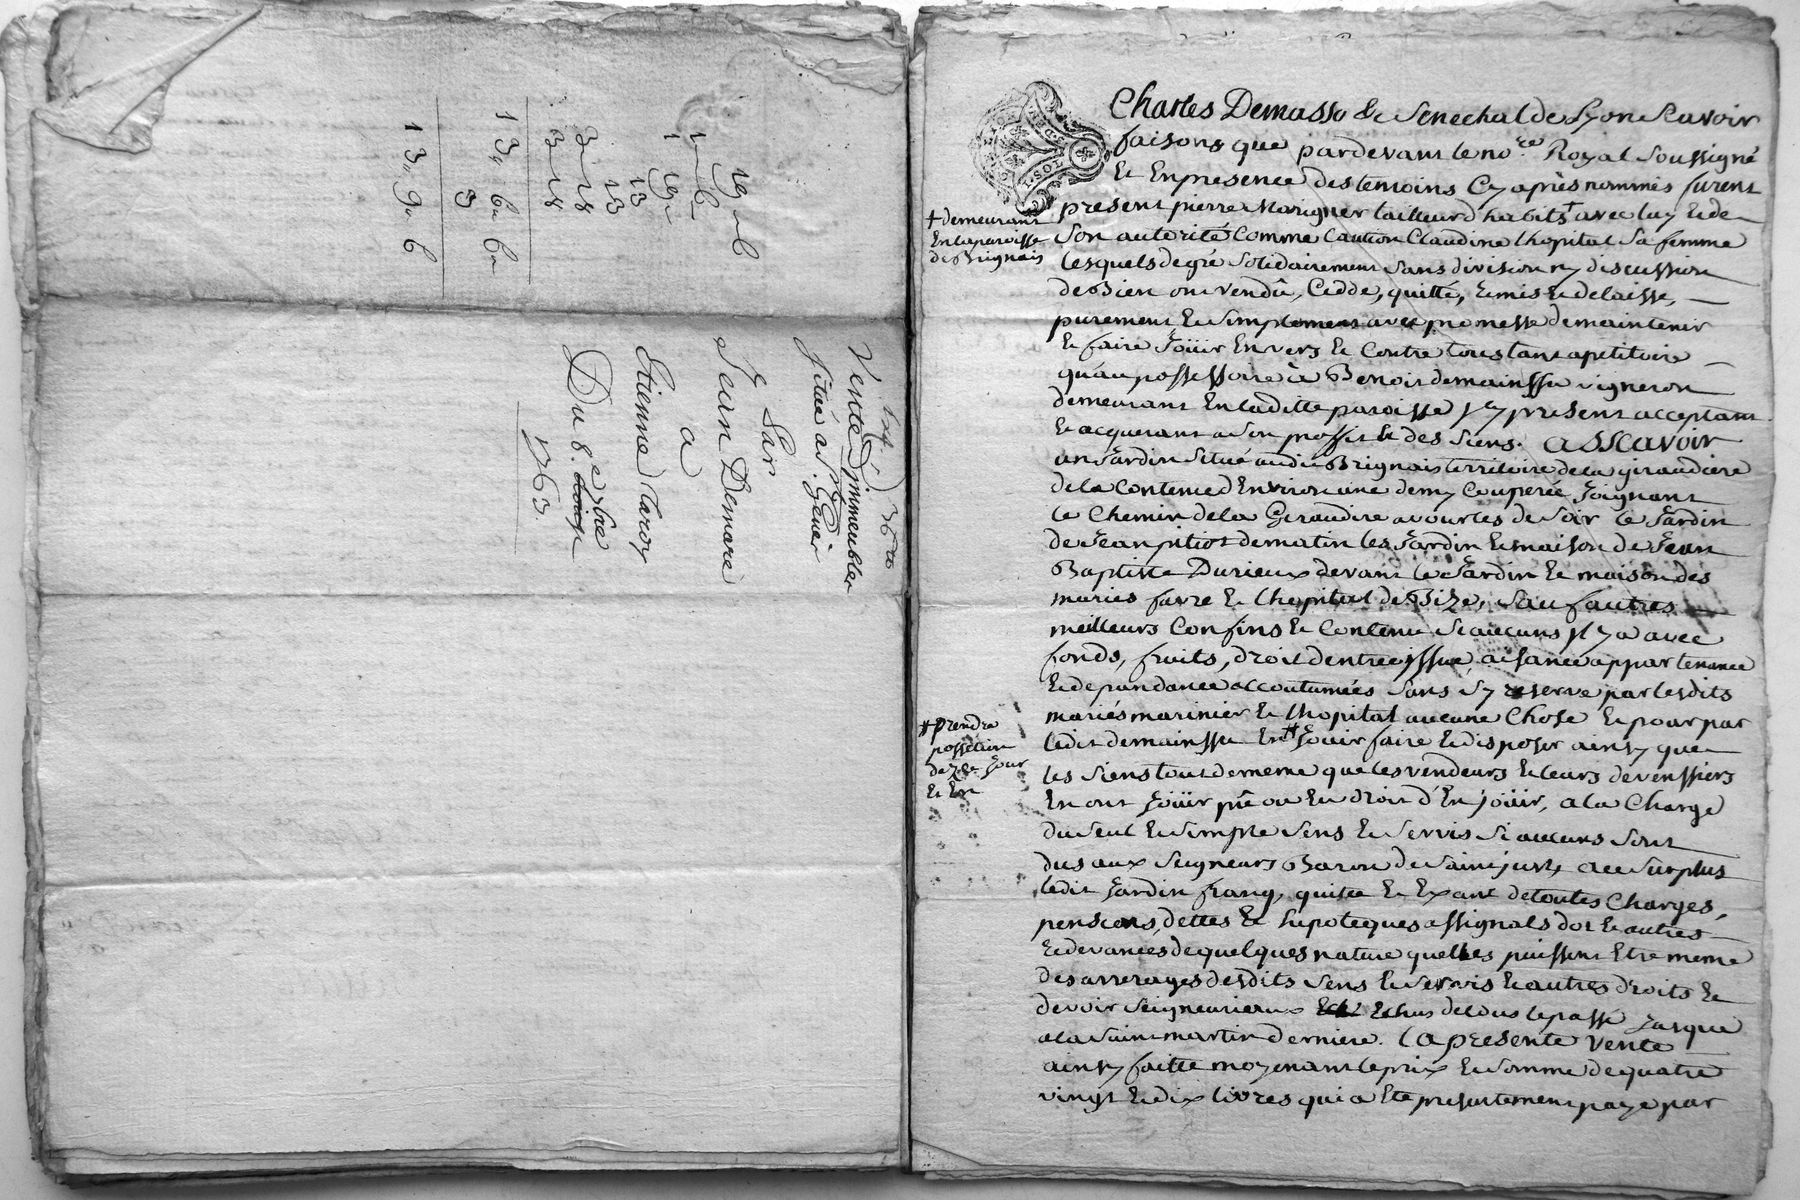 Vente D'jmmeubles
situé a St. Genis
Par
Jean Demare
a
Etienne Taroy
Du 8.e xbre
1763.
Charles Demasso &c Senechal de Lyon Scavoir
faisons que pardevant le no.re Royal Soussigné
Et En presence des temoins Cy après nommés furent
présent pierre Marignier tailleur d'habits + avec luy & de
Son autorité Comme Caution Claudine Lhopital Sa femme
Lesquels de gré Solidairement Sans division ny discussion
de Bien ont vendû, Cedde, quitté, remis & delaisse,
purement & Simplement avec promesse de maintenir
& faire Joüir Envers & Contre tous tant apetitoire
qu'au possessoire à Benoit demainssu vigneron
demeurant En laditte paroisse Jcy present acceptant
& acquerant a Son proffit & des Siens. ASSCavoir
un Jardin Situé audit Brignais territoire de la giraudiere
de la Contenue d'Environ une demy Couperée Joignant
le Chemin de la Giraudire avourles de Soir le Jardin
de Jean pitiot de matin les Jardin & maison de Jean
Baptiste Durieux devant le Jardin & maison des
mariés favre & Lhopital de Bize, Sauf autres
meilleurs Confins & Contenu Si aucuns Jl y a avec
fonds, fruits, droit d'entrée issue, aisance appartenance
& dependance accoutumées Sans S'y reserve par lesdits
mariés marinier & Lhopital aucune Chose & pour par
ledit demainssu En # Jouir faire & disposer ainsy que
les Siens tout de meme que les vendeurs & leurs devenssiers
En ont Joüir pû ou Eu droit d'En joüir, a la Charge
du Seul & Simple Sens & Servis Si aucuns Sont
dus aux Seigneurs Baron de Saint just, au Surplus
ledit Jardin franq, quitte & Exant de toutes Charges,
pensions, dettes & hipoteques assignals dot & autres
redevances de quelques nature quelles puissent Etre meme
des arrerages desdits Sens & Servis & autres droits &
devoir Seigneuriaux Echus de tous le passé Jusque
a la Saint martin derniere. La presente Vente
ainsy faitte moyenant le prix & Somme de quatre
vingt & dix livres qui a Eté presentement payé par
+ demeurant
En la paroisse
de Brignais
# prendre
possession
dez Ce Jour
Et En